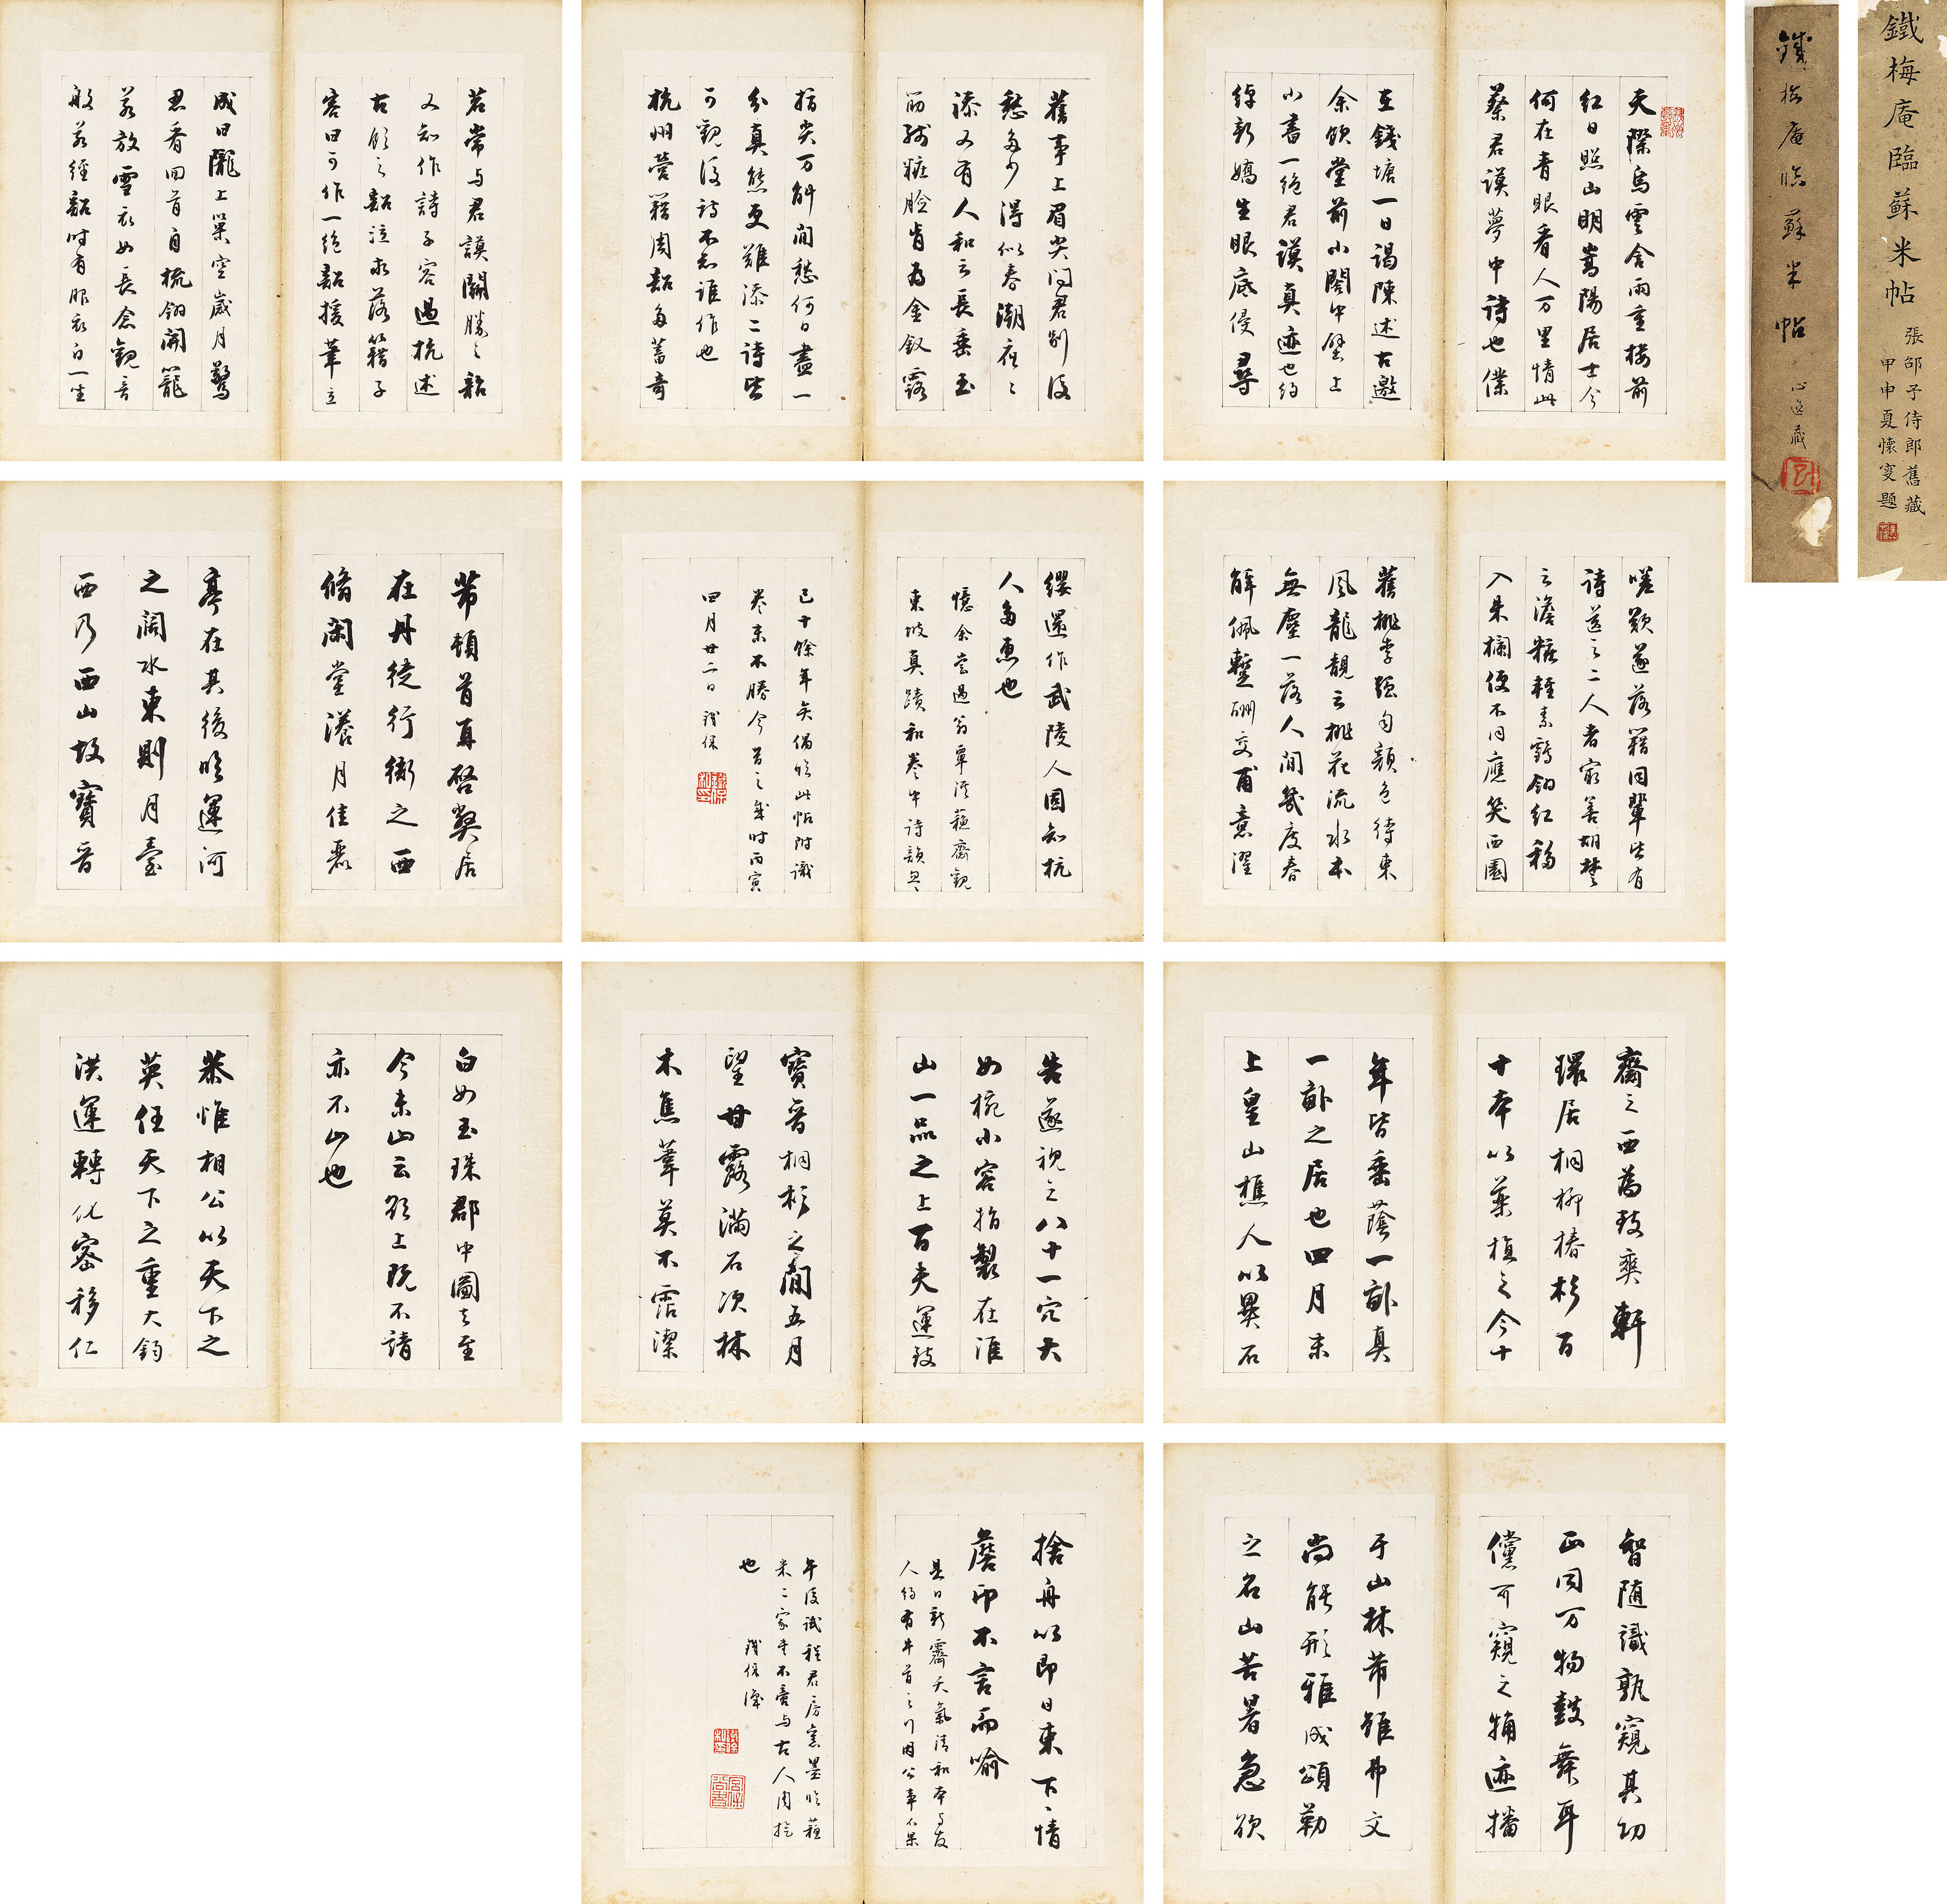 鐵梅庵臨蘇米帖
張邵子侍郎舊藏
甲申夏懷叟題
鐵梅庵臨蘇米帖
心逸藏
天際烏雲含雨重樓前
紅日照山明嵩陽居士今
何在青眼看人萬里情此
蔡君謨夢中詩也僕
在錢塘一日謁陳述古邀
余飲堂前小閣中壁上
小書一絕君謨真迹也約
綽新嬌生眼底侵尋
舊事上眉尖問君別後
愁多少得似春潮夜々
添又有人和云長垂玉
筯殘粧臉肯為金釵露
指尖万斛閒愁何日盡一
分真態更難添二詩皆
可觀後詩不知誰作也
杭州營籍周韶多蓄奇
茗常与君謨鬭勝之韶
又知作詩子容過杭述
古飲之韶泣求落籍子
容曰可作一絕韶援筆立
成曰隴上巢空歲月驚
忍看回首自梳翎開籠
若放雪衣女長念觀音
般若經韶時有服衣白一坐
嗟歎遂落籍同輩皆有
詩送之二人者最善胡楚
云淡粧輕素鶴翎紅移
入朱欄便不同應笑西園
舊桃李強勻顏色待東
風龍靚云桃花流水本
無塵一落人間幾度春
解佩暫酬交甫意濯
纓還作武陵人固知杭
人多惠也
憶余嘗過翁覃溪蘇齋觀
東坡真蹟和卷中詩韻忽
已十餘年矣偶臨此帖附識
卷末不勝今昔之感時丙寅
四月廿二日 鐵保
芾頓首再啓弊居
在丹徒行衙之西
脩閑堂漾月佳麗
亭在其後臨運河
之闊水東則月臺
西乃西山故寶晉
齋之西為致爽軒
環居桐柳椿杉百
十本以藥植之今十
年皆垂蔭一畝真
一畝之居也四月末
上皇山樵人以異石
告遂視之八十一穴大
如椀小容指製在淮
山一品之上百夫運致
寶晉桐杉之間五月
望甘露滿石次林
木焦葦莫不霑潔
白如玉珠郡中圖去至
今未山云欲上既不請
亦不山也
恭惟相公以天下之
英任天下之重大鈞
洪運轉化密移仁
智隨識孰窺其功
正同万物鼓舞耳
儻可窺之補迹播
于山林芾雖弗文
尚能形雅成頌勒
之名山苦暑急欲
捨舟以即日東下々情
蘑印不言而喻
是日新霽天氣清和本与友
人約有牛首之行因公事不果
午後試程君房窯墨臨蘇
米二家書不啻与古人周旋
也
鐵保識